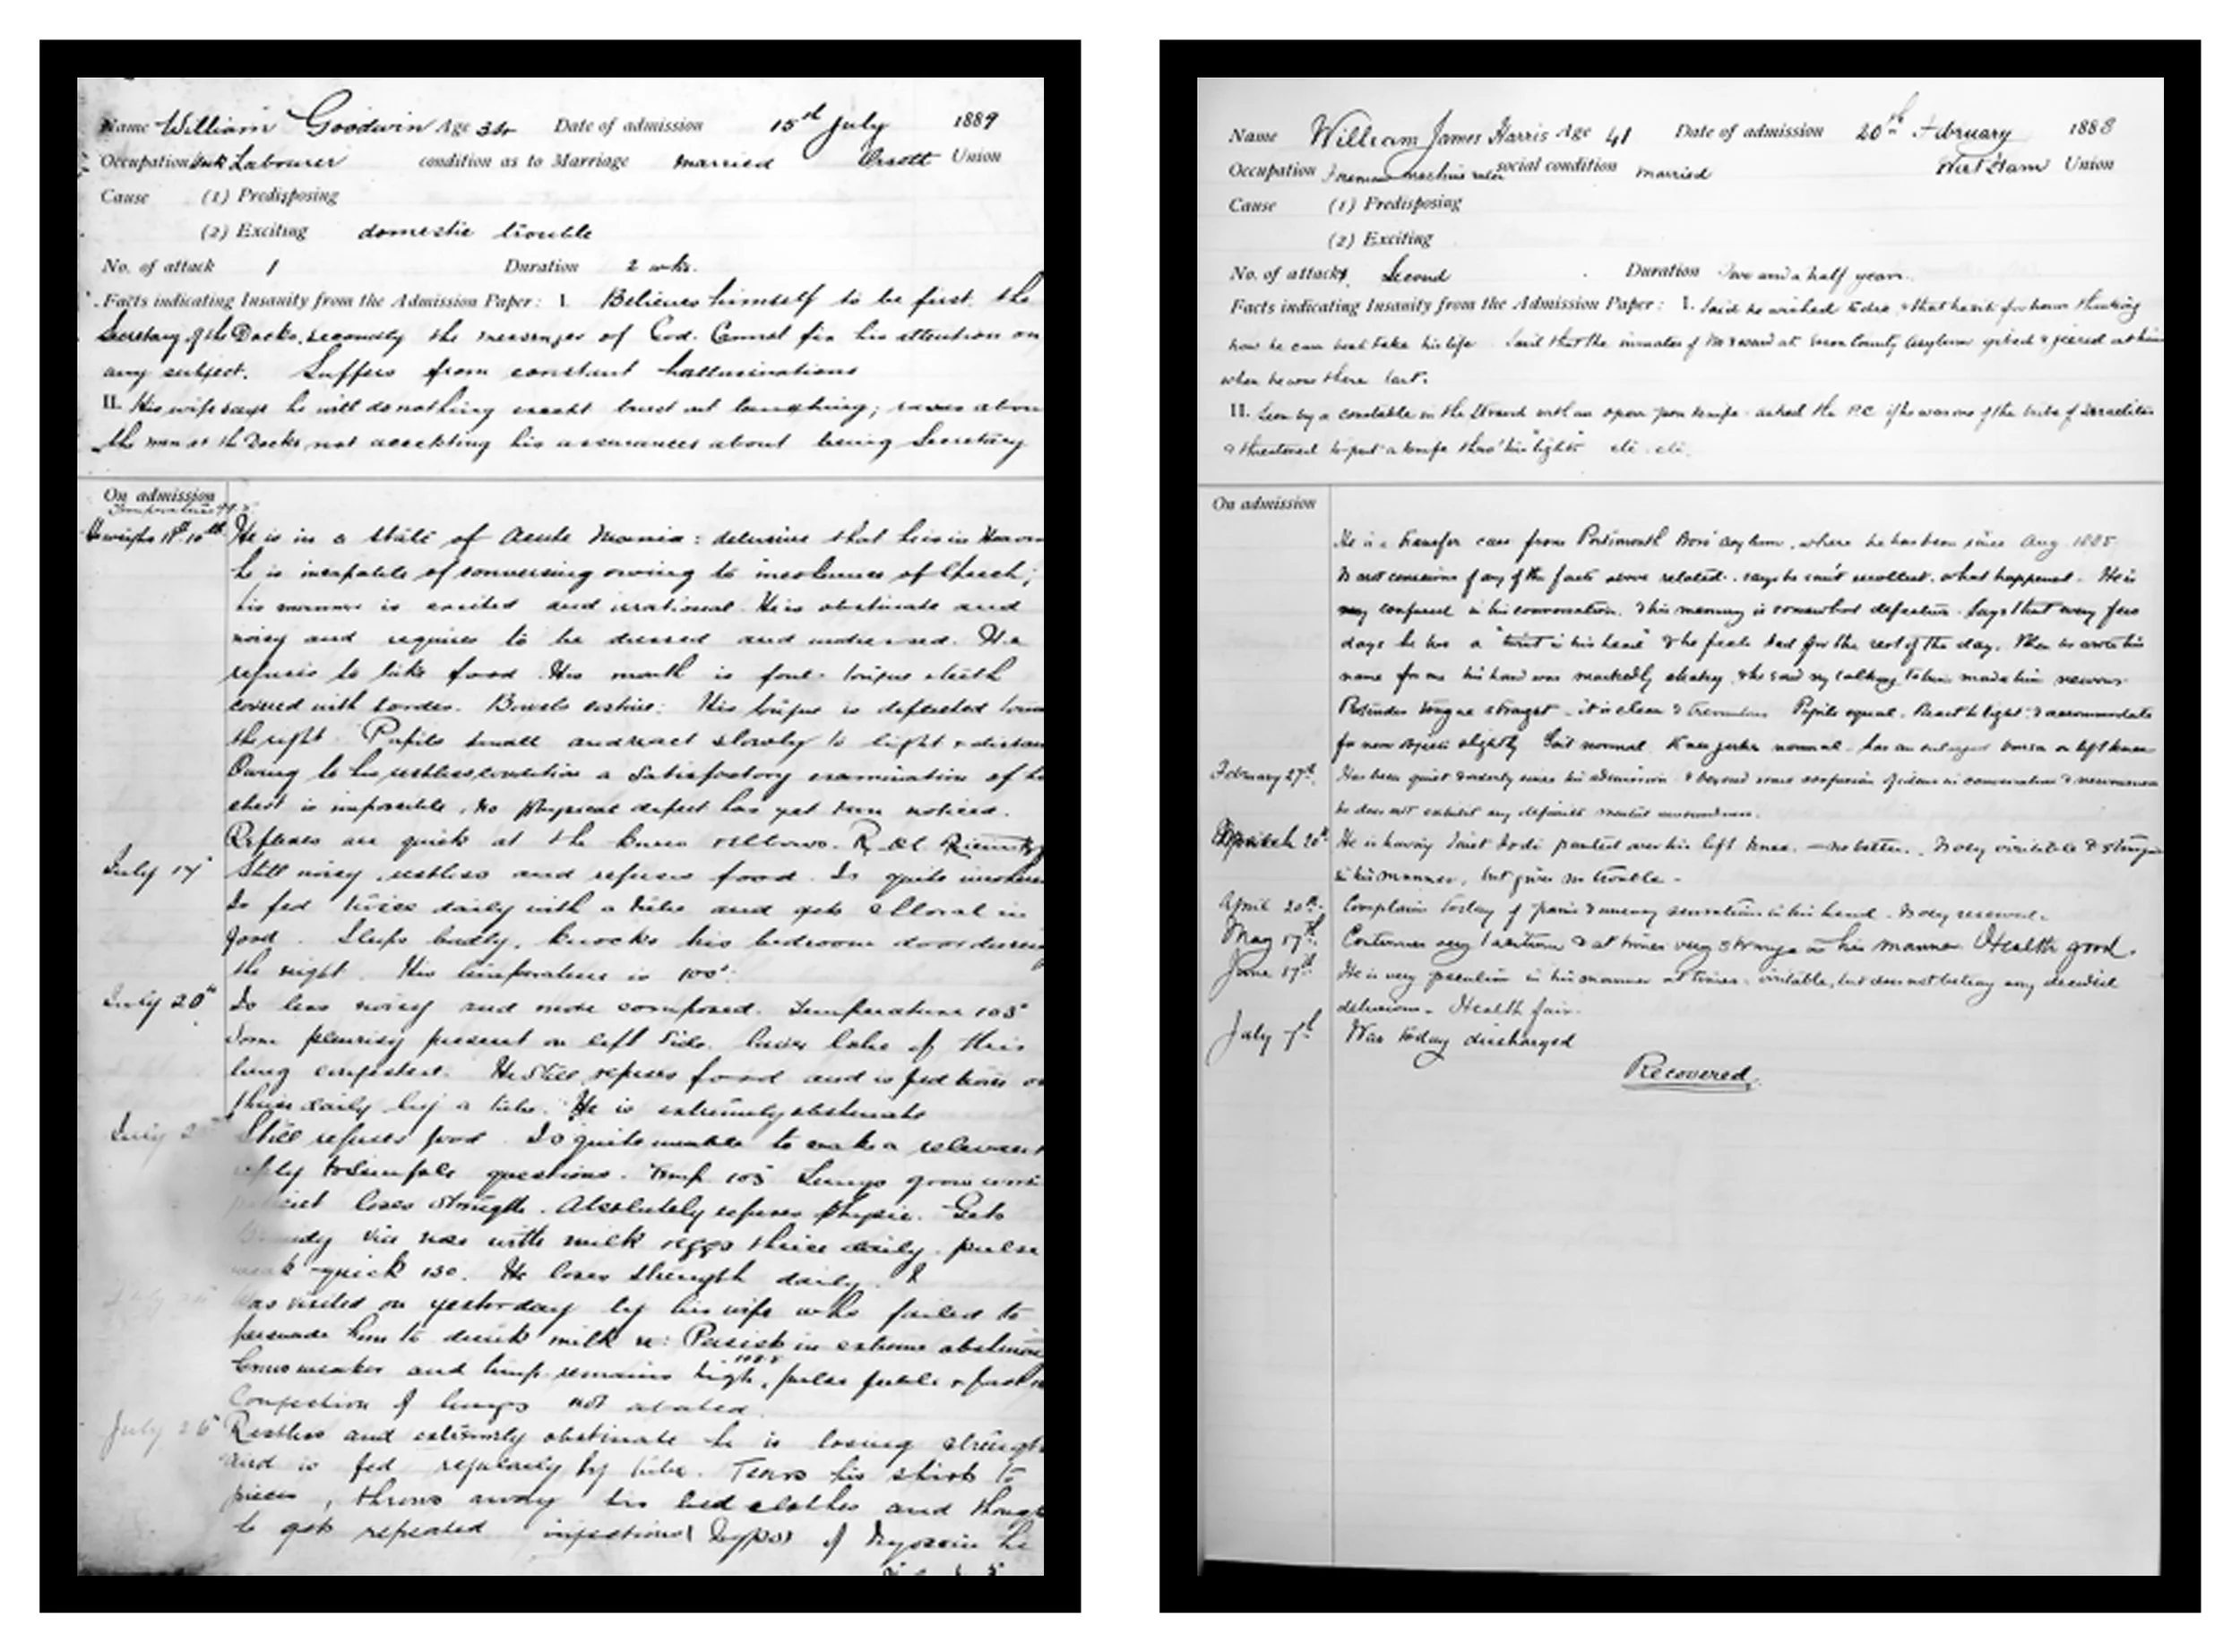 Name William Goodwin Age 34 Date of admission 15th July 1889
Occupation Dock Labourer condition as to Marriage Married Orsett Union
Cause (1) Predisposing
(2) Exciting domestic trouble
No. of attack 1 Duration 2 wks.
Facts indicating Insanity from the Admission Paper: I. Believes himself to be first, the
Secretary of the Docks, secondly the messenger of God. Cannot fix his attention on
any subject. Suffers from constant hallucinations
II. His wife says he will do nothing except burst out laughing; raves about
the men at the Docks not accepting his assurances about being Secretary
On admission
Temperature 99.
He is in a state of Acute Mania: delusive that he is in Heaven
he is incapable of conversing owing to incoherence of speech;
his manner is excited and irrational. He is obstinate and
noisy and requires to be dressed and undressed. He
refuses to take food. His mouth is foul. tongue & teeth
covered with sordes. Bowels costive. His tongue is deflected
the right. Pupils small and react slowly to light &
Owing to his restless condition a satisfactory examination of
chest is impossible, no physical defect has yet been noticed.
Reflexes are quick at the knees & elbows.
July 17 Still noisy, restless and refuses food. Is quite
Is fed twice daily with a tube and gets Chloral in
food. Sleeps badly, knocks his bedroom door during
the night. His temperature is 100°.
July 20th Is less noisy and more composed. Temperature 103°
Some pleurisy present on left side. lower lobe of this
lung congested. He still refuses food and is fed twice or
thrice daily by a tube. He is extremely obstinate
July Still refuses food. Is quite unable to make a relevant
reply to simple questions. Temp 103 Lungs grow
patient loses strength. Absolutely refuses physic. Gets
Brandy via nose with milk & eggs thrice daily. pulse
weak quick 130. He loses strength daily.
Was visited on yesterday by his wife who failed to
persuade him to drink milk Persists in extreme
Grows weaker and temp. remains high, pulse feeble &
Congestion of lungs not abated.
July 26 Restless and extremely obstinate he is losing strength
and is fed regularly by tube. Tears his shirts to
pieces, throws away his bed clothes and though
he gets repeated injections (hypo) of Hyoscin he
Name William James Harris Age 41 Date of admission 20th February 1888
Occupation Foreman machine ruler social condition married West Ham Union
Cause (1) Predisposing
(2) Exciting
No. of attacks Second Duration Two and a half years
Facts indicating Insanity from the Admission Paper: I. Said he wished to die & that he sits for hours thinking
how he can best take his life. Said that the inmates of the ward at Essex County Asylum gibed & jeered at him
when he was there last.
II. Seen by a constable in the Strand with an open knife. asked the P.C. if he was one of the tribe of Israelites
& threatened to put a knife thro' his "lights" etc. etc.
On admission
He is a transfer case from Portsmouth Boro' Asylum, where he has been since Aug. 1885
Is not conscious of any of the facts above related. says he can't recollect what happened. He is
very confused in his conversation. & his memory is somewhat defective. Says that every few
days he has a "twist in his head" & he feels bad for the rest of the day. When he wrote his
name for me his hand was markedly shaky & he said my talking to him made him nervous
Protrudes tongue straight. it is clean & tremulous. Pupils equal. React to light & accommodate
for near objects slightly. Gait normal. Knee jerks normal. has an enlarged bursa on left knee
February 27th Has been quiet & orderly since his admission & beyond some confusion of ideas in conversation & nervousness
he does not exhibit any definite mental unsoundness.
March 20th He is having painted over his left knee. no better. Is very irritable & strange
in his manner, but gives no trouble.
April 20th Complains today of pains & uneasy sensations in his head. Is very reserved.
May 17th Continues very taciturn & at times very strange in his manner. Health good.
June 17th He is very peculiar in his manner at times. irritable, but does not betray any decided
delusions. Health fair.
July 7th Was today discharged
Recovered